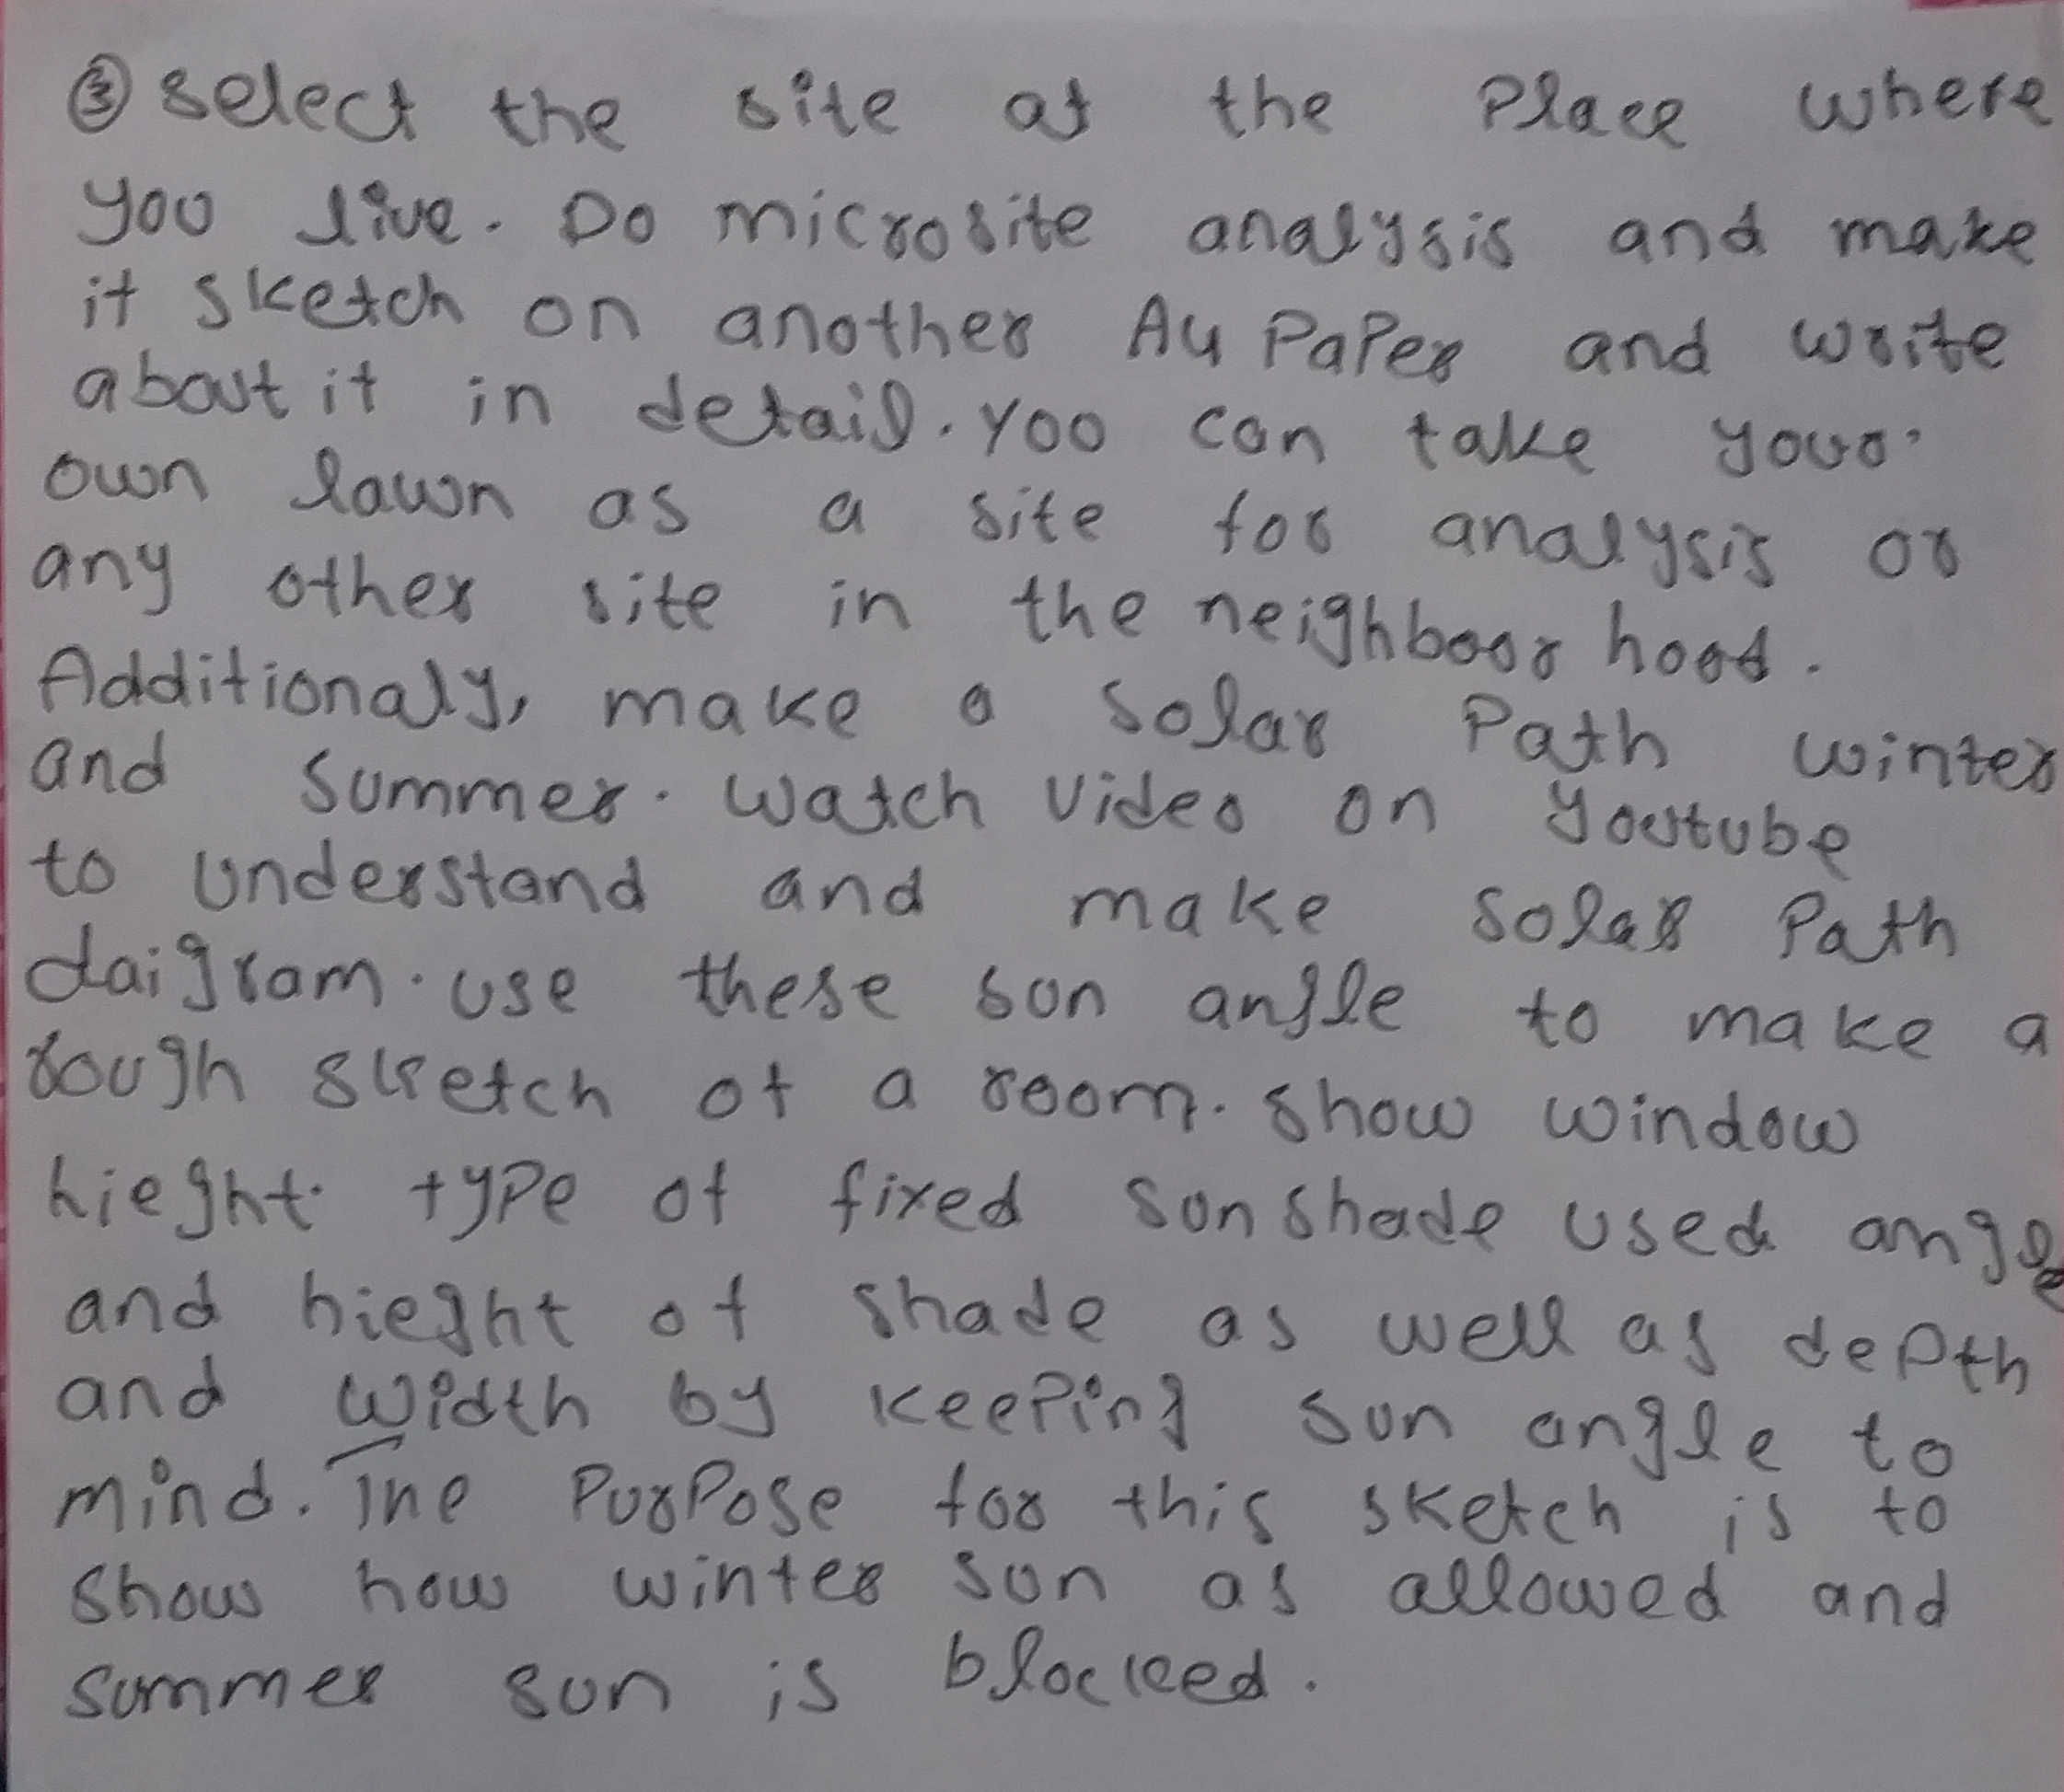 ③ select the site at the Place where
you live. Do microsite analysis and make
it sketch on another A4 Paper and write
about it in detail. you can take your
own lawn as a site for analysis or
any other site in the neighboor hood.
Additionaly, make a solar Path winter
and summer. watch video on youtube
to understand and make solar Path
daigram. use these sun angle to make a
rough sketch of a room. show window
hieght type of fixed sunshade used angle
and hieght of shade as well as depth
and width by keeping sun angle to
mind. The Purpose for this sketch is to
show how winter sun as allowed and
summer sun is blocked.